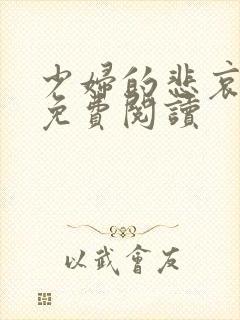 少婦的悲哀
免費閱讀
以武會友